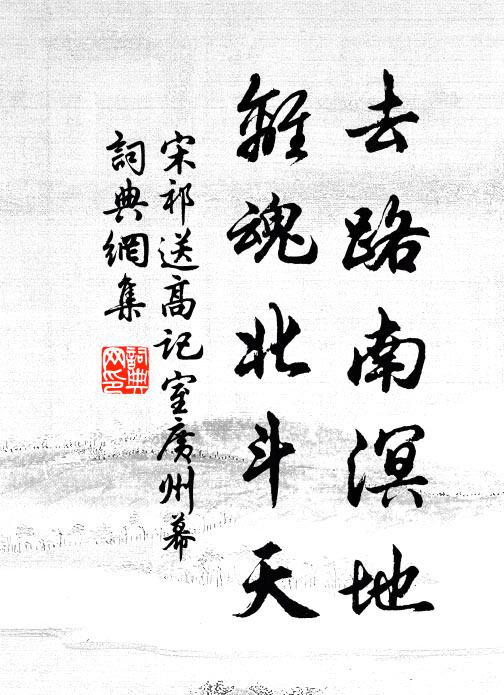 去路南溟地
離魂北斗天
宋祁送高記室廣州幕
詞典網集
詞典网印